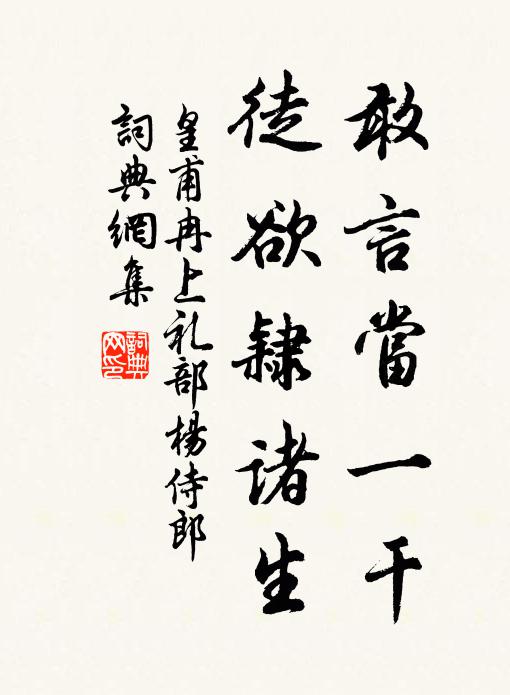 敢言當一干
徒欲隸諸生
皇甫冉上礼部楊侍郎
詞典網集
詞典
网印